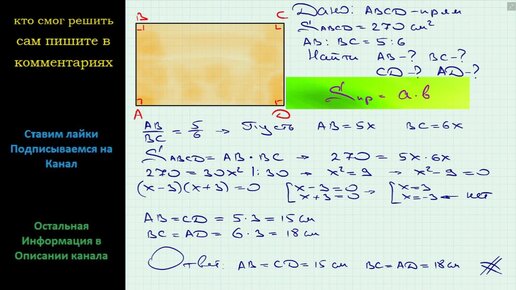 кто смог решить
сам пишите в
комментариях
Ставим лайки
Подписываемся на
Канал
Остальная
Информация в
Описании канала
B C
A D
Дано: ABCD - прям
S ABCD = 270 см²
AB : BC = 5 : 6
Найти AB - ? BC - ?
CD - ? AD - ?
S пр = a · b
AB/BC = 5/6 → Пусть AB = 5x BC = 6x
S ABCD = AB · BC → 270 = 5x · 6x
270 = 30x² |: 30 → x² = 9 → x² - 9 = 0
(x - 3)(x + 3) = 0 [x - 3 = 0 → [x = 3
x + 3 = 0 x = -3 - нет
AB = CD = 5 · 3 = 15 см
BC = AD = 6 · 3 = 18 см
Ответ: AB = CD = 15 см BC = AD = 18 см